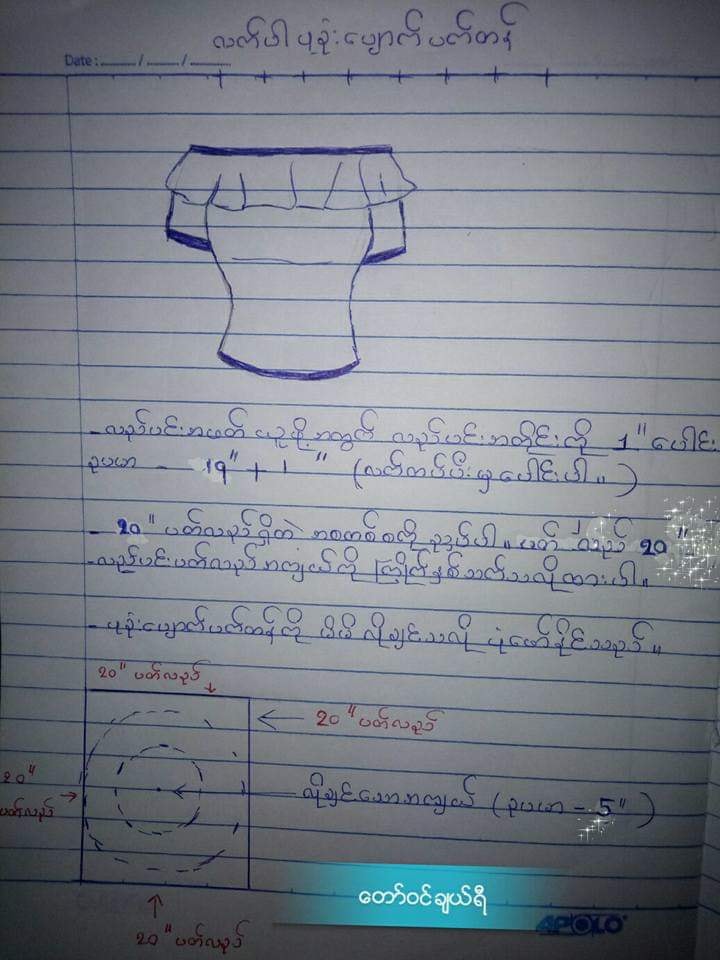 လက်ပါ ပုခုံးပျောက် ပက်တန်
Date : ....... / ....... / .......
- လည်ပင်းအဖတ် ယူဖို့အတွက် လည်ပင်းအတိုင်းကို 1" ပေါင်း
ဥပမာ - 19" + 1" (လက်တပ်ပြီးမှ ပေါင်းပါ။)
- 20" ပတ်လည်ရှိတဲ့ အစတစ်စကို ပတ် လည် 20"
- လည်ပင်းပတ်လည်အကျယ်ကို ကြိုက်နှစ်သက်သလိုထားပါ။
- ပုခုံးပျောက်ပက်တန်ကို မိမိ လိုချင်သလို ပုံဖော်နိုင်သည်။
20" ပတ်လည်
20" ပတ်လည်
20" ပတ်လည်
လိုချင်သောအကျယ် (ဥပမာ - 5")
20" ပတ်လည်
တော်ဝင်ချယ်ရီ
APOLO